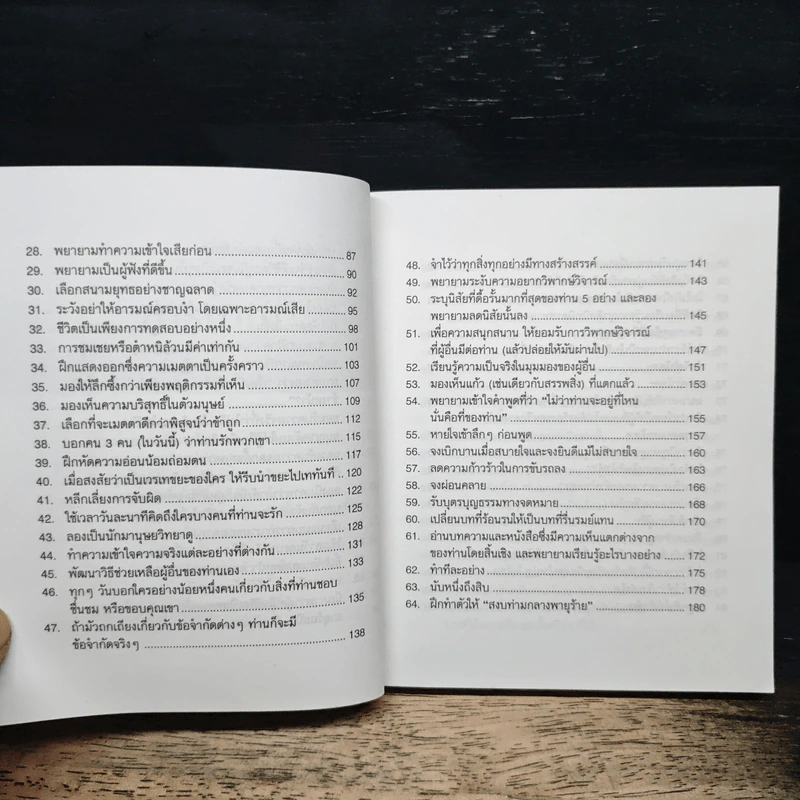 28. พยายามทำความเข้าใจเสียก่อน 87
29. พยายามเป็นผู้ฟังที่ดีขึ้น 90
30. เลือกสนามยุทธอย่างชาญฉลาด 92
31. ระวังอย่าให้อารมณ์ครอบงำ โดยเฉพาะอารมณ์เสีย 95
32. ชีวิตเป็นเพียงการทดสอบอย่างหนึ่ง 98
33. การชมเชยหรือตำหนิล้วนมีค่าเท่ากัน 101
34. ฝึกแสดงออกซึ่งความเมตตาเป็นครั้งคราว 103
35. มองให้ลึกซึ้งกว่าเพียงพฤติกรรมที่เห็น 107
36. มองเห็นความบริสุทธิ์ในตัวมนุษย์ 109
37. เลือกที่จะเมตตาดีกว่าพิสูจน์ว่าข้าถูก 112
38. บอกคน 3 คน (ในวันนี้) ว่าท่านรักพวกเขา 115
39. ฝึกหัดความอ่อนน้อมถ่อมตน 117
40. เมื่อสงสัยว่าเป็นเวรเทขยะของใคร ให้รีบนำขยะไปเททันที 120
41. หลีกเลี่ยงการจับผิด 122
42. ใช้เวลาวันละนาทีคิดถึงใครบางคนที่ท่านจะรัก 125
43. ลองเป็นนักมานุษยวิทยาดู 128
44. ทำความเข้าใจความจริงแต่ละอย่างที่ต่างกัน 131
45. พัฒนาวิธีช่วยเหลือผู้อื่นของท่านเอง 133
46. ทุกๆ วันบอกใครอย่างน้อยหนึ่งคนเกี่ยวกับสิ่งที่ท่านชอบ
ชื่นชม หรือขอบคุณเขา 135
47. ถ้ามัวถกเถียงเกี่ยวกับข้อจำกัดต่างๆ ท่านก็จะมี
ข้อจำกัดจริงๆ 138
48. จำไว้ว่าทุกสิ่งทุกอย่างมีทางสร้างสรรค์ 141
49. พยายามระงับความอยากวิพากษ์วิจารณ์ 143
50. ระบุนิสัยที่ดื้อรั้นมากที่สุดของท่าน 5 อย่าง และลอง
พยายามลดนิสัยนั้นลง 145
51. เพื่อความสนุกสนาน ให้ยอมรับการวิพากษ์วิจารณ์
ที่ผู้อื่นมีต่อท่าน (แล้วปล่อยให้มันผ่านไป) 147
52. เรียนรู้ความเป็นจริงในมุมมองของผู้อื่น 151
53. มองเห็นแก้ว (เช่นเดียวกับสรรพสิ่ง) ที่แตกแล้ว 153
54. พยายามเข้าใจคำพูดที่ว่า “ไม่ว่าท่านจะอยู่ที่ไหน
นั่นคือที่ของท่าน” 155
55. หายใจเข้าลึกๆ ก่อนพูด 157
56. จงเบิกบานเมื่อสบายใจและจงยินดีแม้ไม่สบายใจ 160
57. ลดความก้าวร้าวในการขับรถลง 163
58. จงผ่อนคลาย 166
59. รับบุตรบุญธรรมทางจดหมาย 168
60. เปลี่ยนบทที่ร้อนรนให้เป็นบทที่รื่นรมย์แทน 170
61. อ่านบทความและหนังสือซึ่งมีความเห็นแตกต่างจาก
ของท่านโดยสิ้นเชิง และพยายามเรียนรู้อะไรบางอย่าง 172
62. ทำทีละอย่าง 175
63. นับหนึ่งถึงสิบ 178
64. ฝึกทำตัวให้ “สงบท่ามกลางพายุร้าย” 180